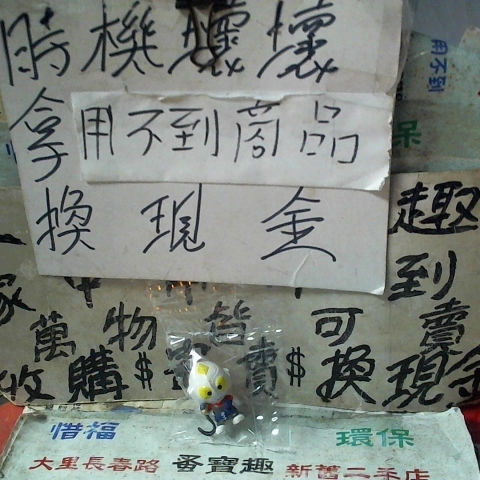 時機壞壞
拿用不到商品
換現金
用不到
保
趣
到
家
萬物皆可賣
收購$賣$換現金
惜福
環保
大里長春路 蚤寶趣 新舊二手店